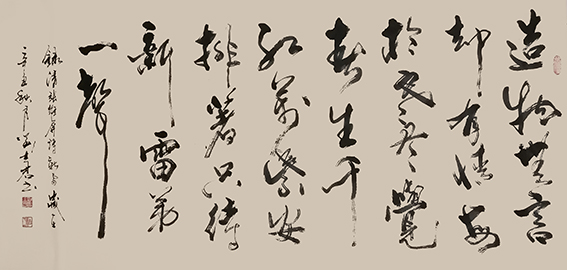 造物無言
却有情每
於寒盡覺
春生千
紅萬紫安
排著只待
新雷第
一聲
錄清張維屏詩新雷歲在
辛丑秋月